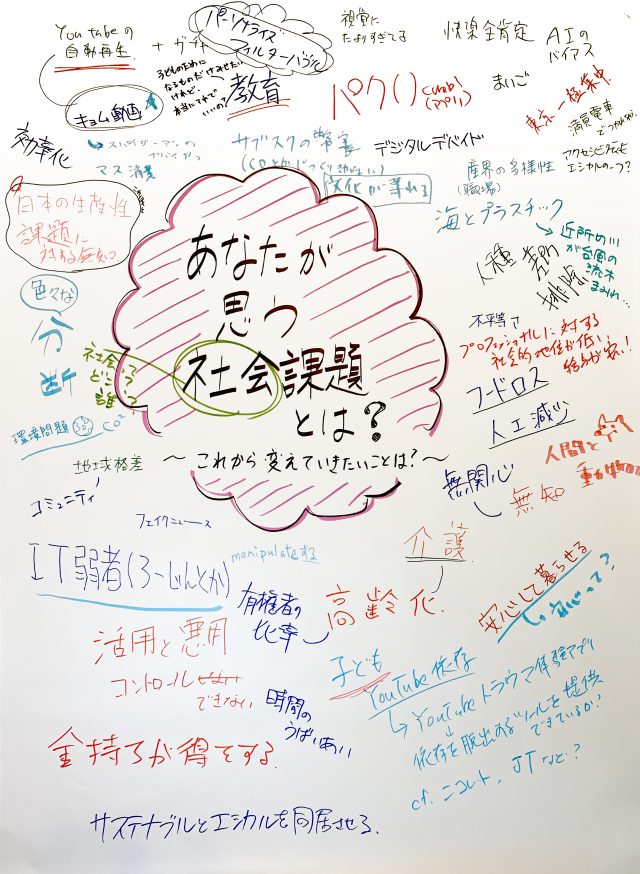 YouTubeの
自動再生
キョム動画
パーソナライズ
フィルターバブル
視覚に
たよりすぎてる
快楽全肯定
AIの
バイアス
教育
パクり
まいご
東京一極集中
満員電車
効率化
マス消費
サブスクの弊害
文化が薄れる
デジタルデバイド
産界の多様性
(職場)
アクセシビリティも
エシカルの一つ?
日本の生産性
課題に
対する無知
海とプラスチック
近所の川
が台風
の流木
まみれ…
人種差別
排除
色々な
分断
社会って
どこ?
誰?
あなたが
思う
社会課題
とは?
〜これから変えていきたいことは?〜
不平等さ
プロフェッショナルに対する
社会的地位が低い
給料が安い!
フードロス
人工減少
人間と
動物
環境問題
CO²
地域格差
コミュニティ
フェイクニュース
無関心
無知
IT弱者(ろーじんとか)
manipulateする
介護
有権者の
比率
高齢化
安心して暮らせる
活用と悪用
コントロール
できない
時間の
うばいあい
子ども
YouTube依存
→YouTubeトラウマ体験アプリ
↓
依存を脱出するツールを提供
できているか?
cf. ニコレット、JTなど?
金持ちが得をする
サステナブルとエシカルを同居させる、